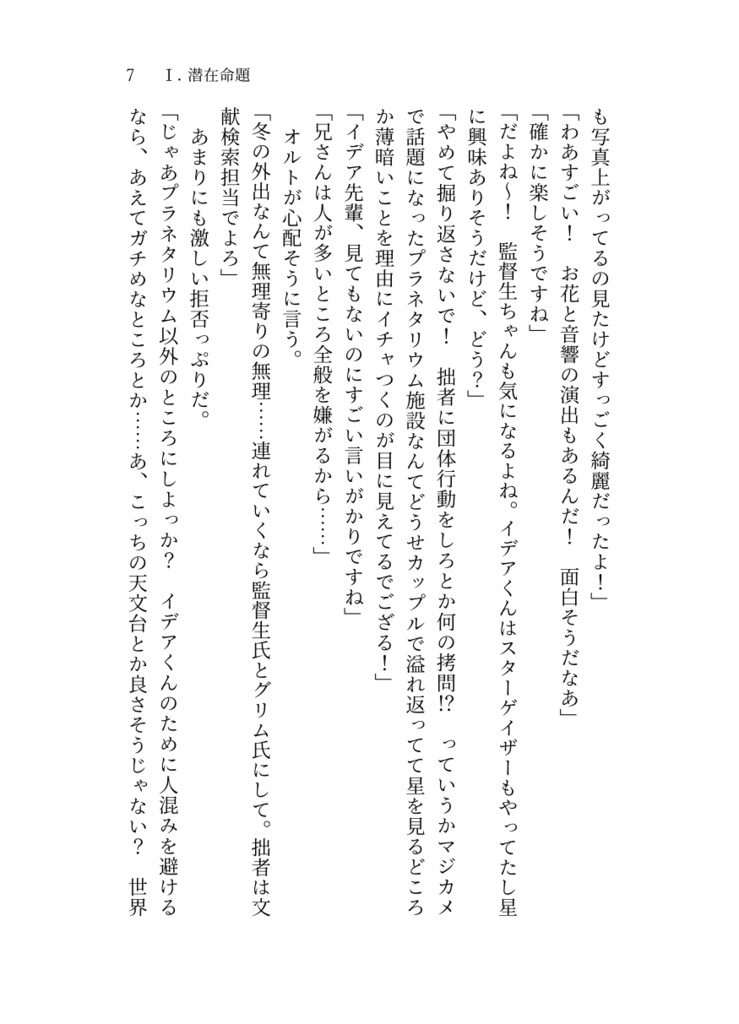 7　Ⅰ. 潜在命題
も写真上がってるの見たけどすっごく綺麗だったよ！」
「わあすごい！　お花と音響の演出もあるんだ！　面白そうだなあ」
「確かに楽しそうですね」
「だよね～！　監督生ちゃんも気になるよね。イデアくんはスターゲイザーもやってたし星
に興味ありそうだけど、どう？」
「やめて掘り返さないで！　拙者に団体行動をしろとか何の拷問⁉　っていうかマジカメ
で話題になったプラネタリウム施設なんてどうせカップルで溢れ返ってて星を見るどころ
か薄暗いことを理由にイチャつくのが目に見えてるでござる！」
「イデア先輩、見てもないのにすごい言いがかりですね」
「兄さんは人が多いところ全般を嫌がるから……」
　オルトが心配そうに言う。
「冬の外出なんて無理寄りの無理……連れていくなら監督生氏とグリム氏にして。拙者は文
献検索担当でよろ」
　あまりにも激しい拒否っぷりだ。
「じゃあプラネタリウム以外のところにしよっか？　イデアくんのために人混みを避ける
なら、あえてガチめなところとか……あ、こっちの天文台とか良さそうじゃない？　世界